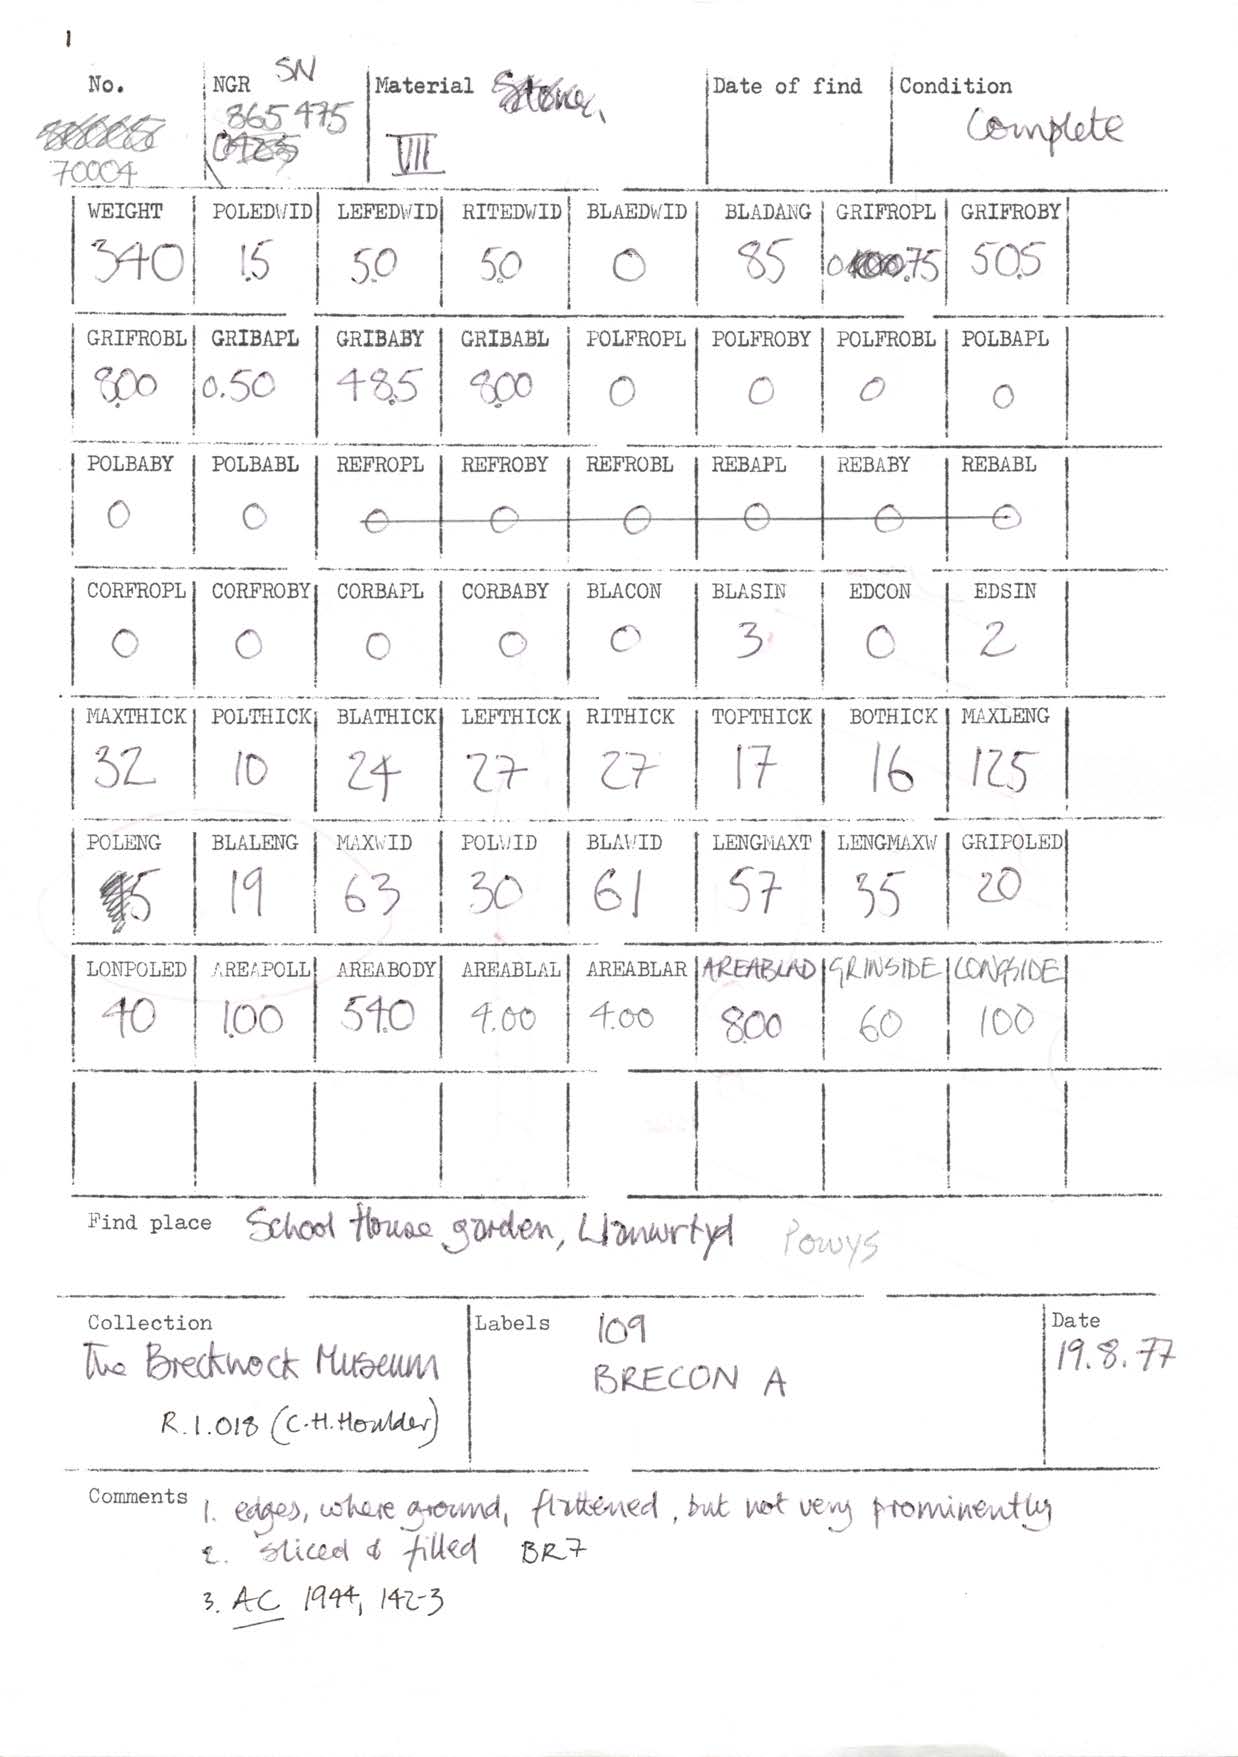 1
No. NGR SN Material Date of find Condition
865 475 Complete
70004 VII
WEIGHT POLEDWID LEFEDWID RITEDWID BLAEDWID BLADANG GRIFROPL GRIFROBY
340 1.5 5.0 5.0 0 85 0.75 50.5
GRIFROBL GRIBAPL GRIBABY GRIBABL POLFROPL POLFROBY POLFROBL POLBAPL
8.00 0.50 48.5 8.00 0 0 0 0
POLBABY POLBABL REFROPL REFROBY REFROBL REBAPL REBABY REBABL
0 0 0 0 0 0 0 0
CORFROPL CORFROBY CORBAPL CORBABY BLACON BLASIN EDCON EDSIN
0 0 0 0 0 3 0 2
MAXTHICK POLTHICK BLATHICK LEFTHICK RITHICK TOPTHICK BOTHICK MAXLENG
32 10 24 27 27 17 16 125
POLENG BLALENG MAXWID POLWID BLAWID LENGMAXT LENGMAXW GRIPOLED
5 19 63 30 61 57 35 20
LONPOLED AREAPOLL AREABODY AREABLAL AREABLAR AREABLAD GRINSIDE LONGSIDE
40 1.00 54.0 4.00 4.00 8.00 60 100
Find place School House garden, Llanwrtyd Powys
Collection Labels 109 Date
The Brecknock Museum BRECON A 19.8.77
R.1.018 (C.H.Houlder)
Comments 1. edges, where ground, flattened, but not very prominently
2. sliced & filled BR7
3. AC 1944, 142-3